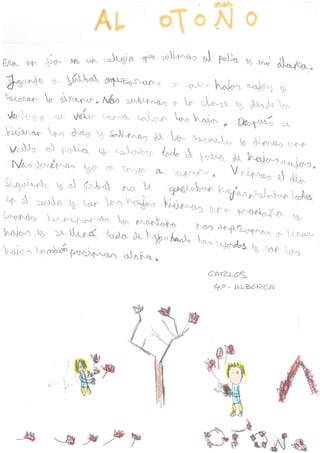 AL OTOÑO
Era un día en un colegio que salimos al patio y era otoño.
Jugando a fútbol empezaron a caer hojas rojas y
tocaron la sirena. Nos subimos a la clase y desde la
ventana se veían como caían las hojas. Después se
hicieron las dos y salimos de la escuela y dimos una
vuelta al patio y estaba todo el patio de hojas rojas.
Nos fuimos ya a casa a comer. Vinimos el día
siguiente y el árbol no le quedaban hojas, estaban todas
en el suelo y con las hojas hicimos una montaña y
cuando terminamos la montaña nos empezamos a tirar
hojas y se llenó todo de hojas hasta los tejados y con las
hojas también pusimos otoño.
CARLOS
4º- ALBORCA
OTOÑO